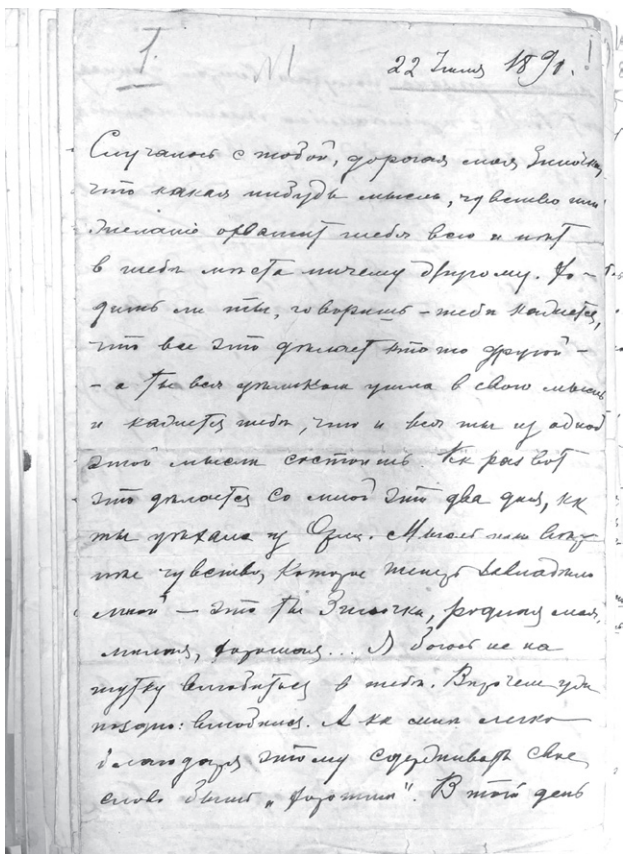 I.
22 Июля 1890. !
Случалось с тобой, дорогая моя Зиночка,
что какая нибудь мысль, чувство или
желание охватит тебя всю и нѣт
в тебѣ мѣста ничему другому. Хо-
дишь ли ты, говоришь – тебѣ кажется,
что все это дѣлает кто то другой –
– а ты вся цѣликом ушла в свою мысль
и кажется тебѣ, что и вся ты из одной
этой мысли состоишь. Как раз вот
это дѣлается со мной эти два дня, как
ты уѣхала из Орла. Мысль или
чувство, которое теперь завладѣло
мной – это ты Зиночка, родная моя,
милая, хорошая... Я боюсь не на
шутку влюбиться в тебя. Впрочем уже
поздно: влюбился. А как мнѣ легко
благодаря этому сдерживать свое
слово быть „хорошим“. В тот день